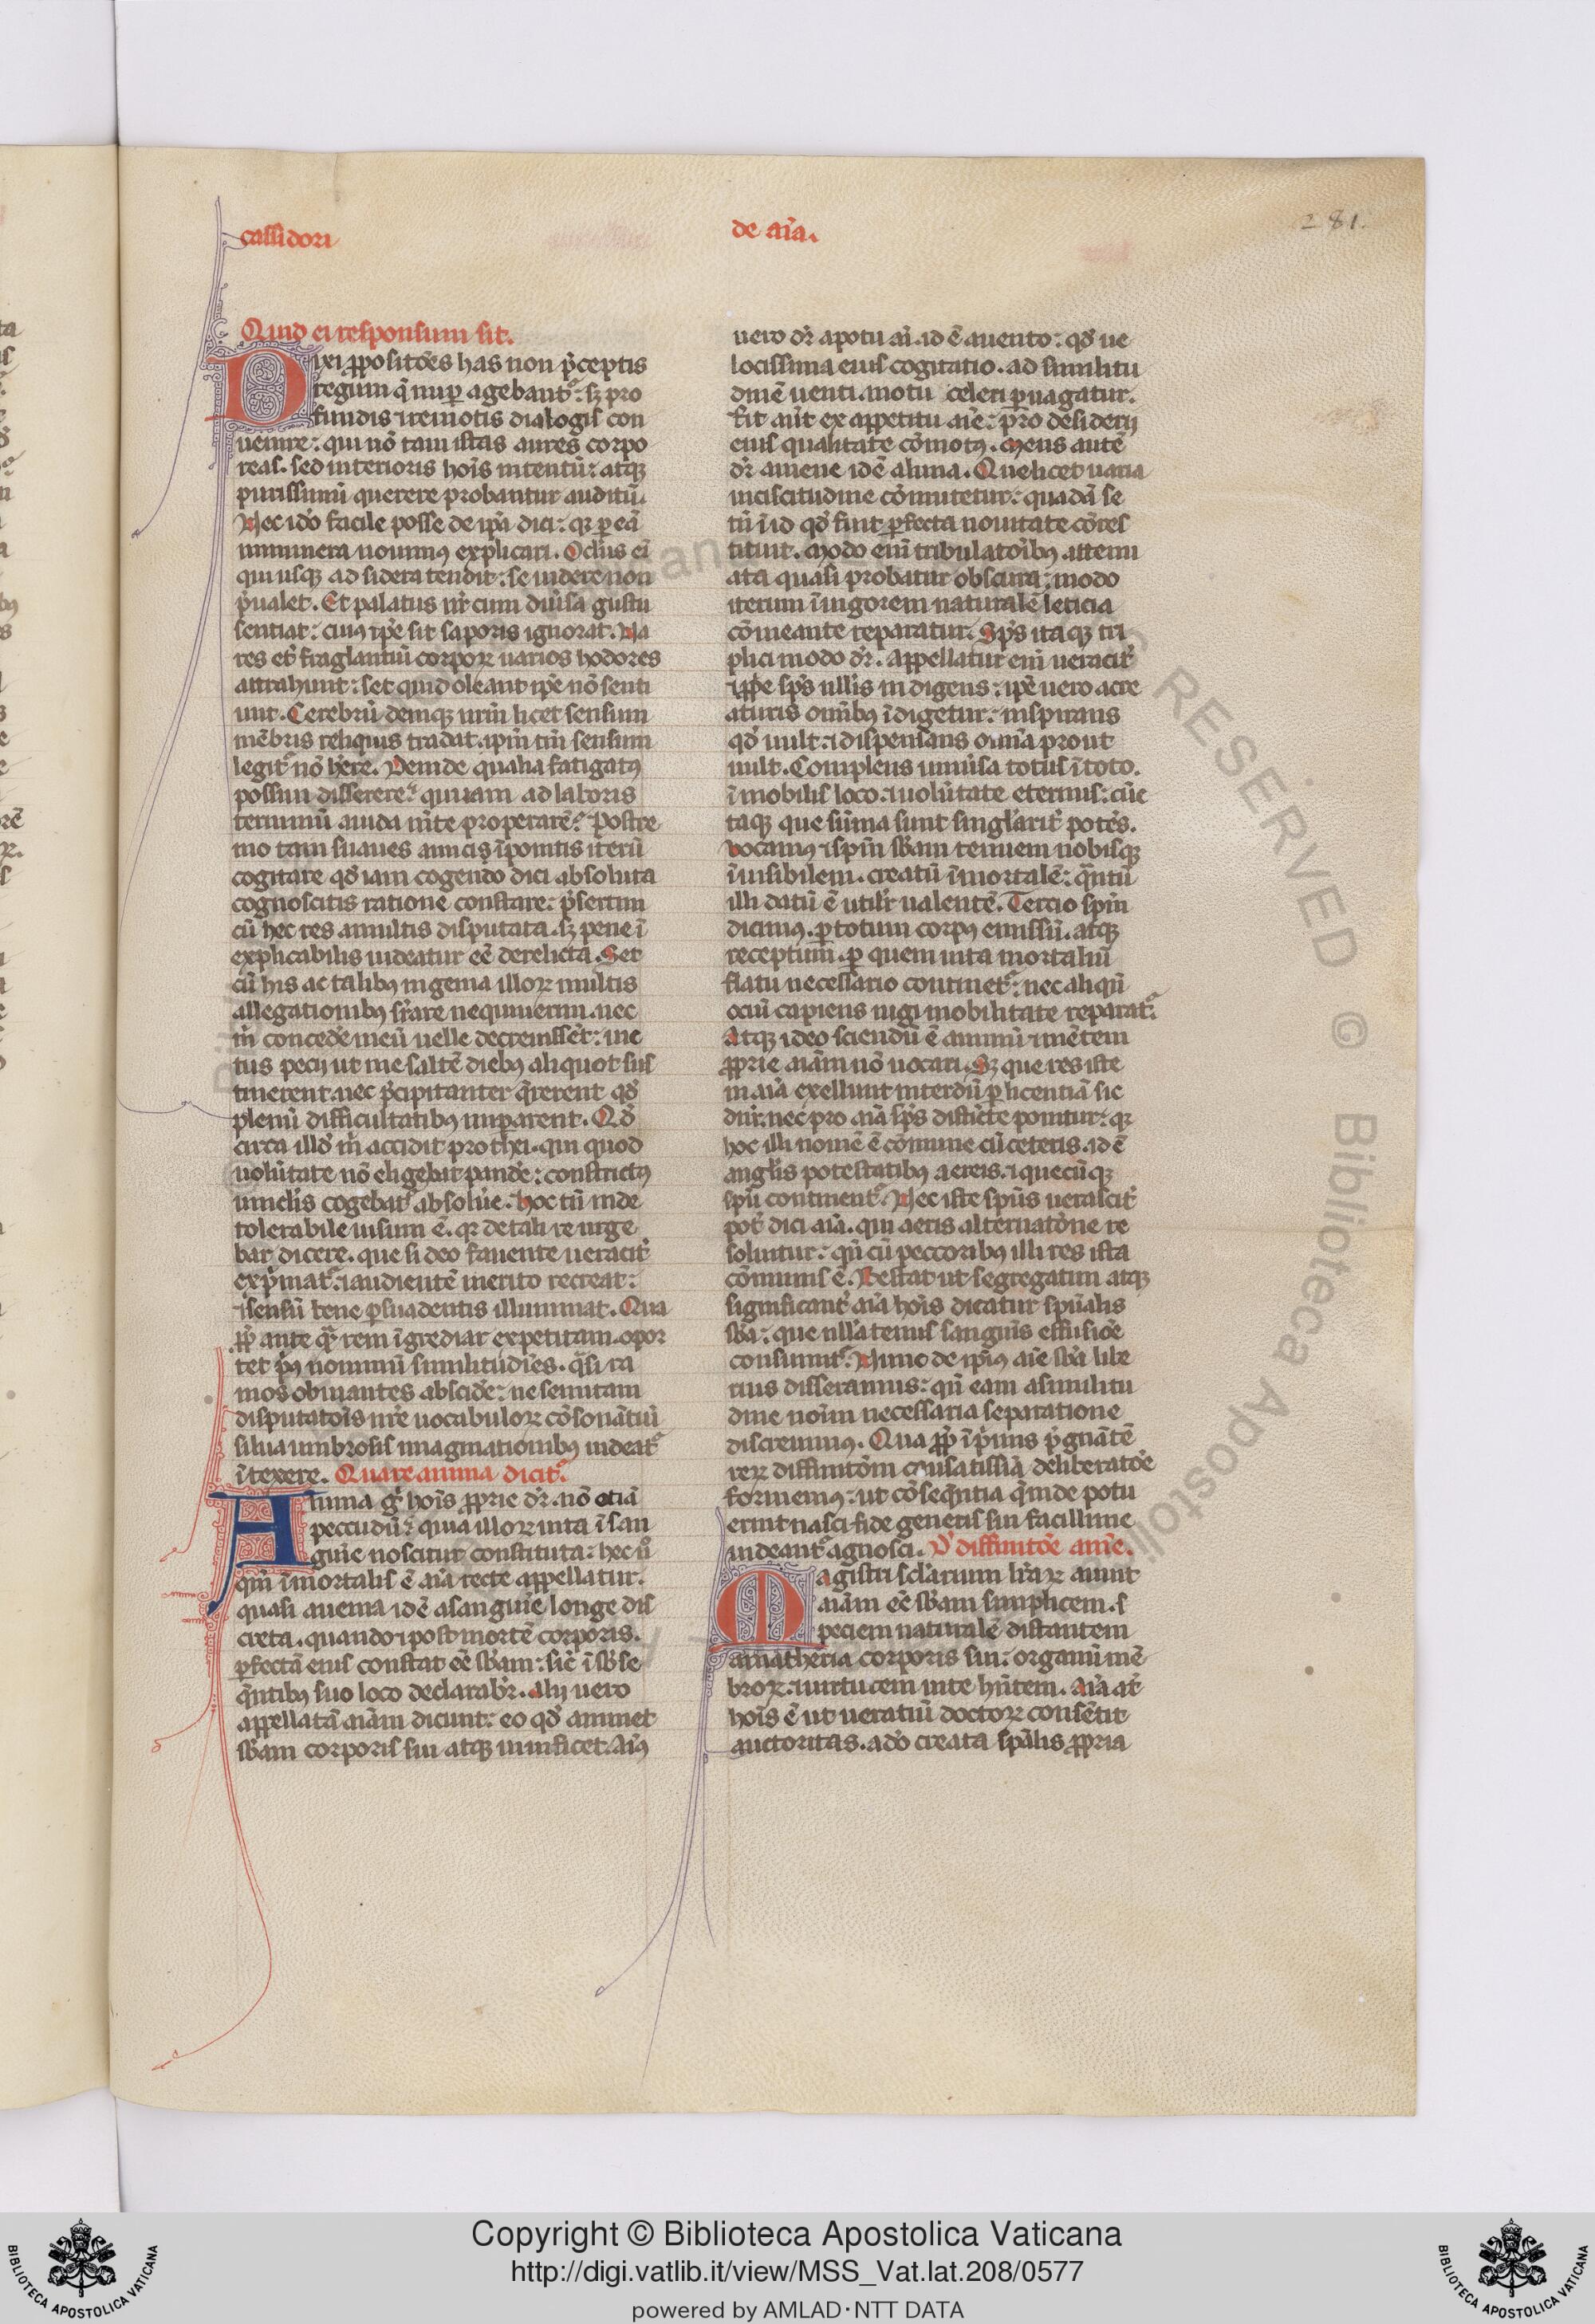 cassidori
de aīa.
281.
Quid ei responsum sit.
Dixi ꝓpositōes has non p̄ceptis
regum q̄ nuꝑ agebant᷑: sꝫ pro
fundis ⁊ remotis dialogis con
uenire: qui nō tam istas aures corpo
reas. sed interioris hoīs intentū: atqꝫ
purissimū querere probantur auditū.
Nec id̊o facile posse de ip̄a dici: qꝛ ꝑ eā
innumera nouimꝰ explicari. Oculus ei̅
qui usqꝫ ad sidera tendit: se uidere non
p̄ualet. Et palatus nr̄ cum diuīsa gustu
sentiat: cuiꝰ ip̄e sit saporis ignorat. Na
res et̄ fraglantiū corpoꝝ uarios hodores
attrahunt: set quid oleant ip̄e nō senti
unt. Cerebrū deniqꝫ nrm̄ licet sensum
mēbris reliquis tradat. ip̄m tm̄ sensum
legit᷑ nō hēre. Deinde qualia fatigatꝰ
possim disserere: qui iam ad laboris
terminū auida mēte properarē? Postre
mo tam suaues amicis īponitis iterū
cogitare qd̓ iam cogendo dici absoluta
cognoscitis ratione constare: p̄sertim
cū hec res a multis disputata. sꝫ pene ī
explicabilis uideatur eē derelicta. Set
cū his ac talibꝰ ingenia illoꝝ multis
allegationibꝰ sr̄are nequiuerim. nec
m̄ concedēe meū uelle decreuissēt: me
tus pecij ut me saltē diebꝰ aliquot sus
tinerent. nec p̄cipitanter q̄rerent qd̓
plenū difficultatibꝰ imꝑarent. Qd̓
circa illd̓ m̄ accidit prothei. qui quod
uolūtate nō eligebat pandē: constrictꝰ
uinclis cogebat᷑ absolūe. Hoc tn̄ inde
tolerabile uisum ē. qꝛ de tali re urge
bar dicere. que si deo fauente ueracit᷑
exp̄mat᷑. ⁊ audientē merito recreat:
⁊ sensū bene ꝑsuadentis illuminat. Qua
ꝓp̄ ante q̄ꝫ rem īgrediar expetitam. opor
tet p̄ꝰ nominū similitudīes. q̄si ra
mos obuiantes abscidē: ne semitam
disputatōis nr̄e uocabuloꝝ cōsonātiū
silua umbrosis imaginationibꝰ uideat᷑
ītexere. Quare anima dicit᷑
Anima g̊ hoīs ꝓprie dr̄. nō etiā
peccudū: quia illoꝝ uita ī san
guīe noscitur constituta: hec ū̊
qm̄ īmortalis ē aīa recte appellatur.
quasi anema idē a sanguīe longe dis
creta. quando ⁊ post mortē corporis.
ꝑfectā eius constat eē sb̄am: sic̄ ī sb̄se
q̄ntibꝰ suo loco declarab̄r. Alij uero
appellatā aīam dicunt: eo qd̓ animet
sb̄am corporis sui atqꝫ uiuificet. Aīꝰ
uero dr̄ apo tu ani. id ē a uento: qd̓ ue
locissima eius cogitatio. ad similitu
dinē uenti. motu celeri ꝑuagatur.
Fit aūt ex appetitu aīe: p̄ro desiderij
eius qualitate cōmotꝰ. Mens autē
dr̄ a mene idē a luna. Que licet uaria
uiciscitudine cōmutetur: quadā se
tn̄ ī id qd̓ fuit ꝑfecta nouitate cōres
tituit. Modo enī tribulatoībꝰ attenu
ata quasi probatur obscura: modo
iterum ī uigorem naturalē leticia
cōmeante reparatur. Sp̄s itaqꝫ tri
plici modo dr̄. appellatur enī ueracit᷑
⁊ ꝓp̄e sp̄s ullīs indigens: ip̄e uero a cre
aturis omībꝰ īdigetur: inspirans
qd̓ uult: ⁊ dispensans omīa prout
uult. Complens uniūsa totus ī toto.
īmobilis loco: ⁊ uolūtate eternus: cūc
taqꝫ que sūma sunt singl̓arit᷑ potēs.
Vocamꝰ ⁊ spm̄ sb̄am tenuem nobisqꝫ
īuisibilem. creatū īmortalē: q̄ntū
illi datū ē util̓r ualentē. Tercio spm̄
dicimꝰ. ꝑ totum corpꝰ emissū. atqꝫ
receptum̄. ꝑ quem uita mortaliū
flatu necessario continet᷑: nec aliqū
ociū capiens iugi mobilitate reparat᷑:
Atqꝫ ideo sciendū ē animū ⁊ mētem
ꝓprie aīam nō uocari. Sꝫ que res iste
in aīa exellunt interdū ꝑ licentiā sic
dn̄r: nec pro aīa sp̄s distīcte ponitur: qꝛ
hoc illi nomē ē cōmune cū ceteris. id ē
angl̓is potestatibꝰ aereis. ⁊ quecūqꝫ
spū continent᷑. Nec iste spūs ueraścit᷑
pōt dici aīa. qui aeris alternatōne re
soluitur: qn̄ cū peccoribꝰ illi res ista
cōmunis ē. Restat ut segregatim atqꝫ
significant᷑ aīa hoīs dicatur spūalis
sb̄a: que nll̓atenus sanguīs effusiōe
consumit᷑. Nunc de ip̄iꝰ aīe sb̄a libe
rius disseramus: qn̄ eam a similitu
dine noīm necessaria separatione
discreuimꝰ. Qua ꝓp̄ ī p̄mis p̄gnātē
reꝝ diffinitōm cousatissīa deliberatōe
formemꝰ: ut cōseq̄ntia q̄ inde potu
erint nasci. fide generis sui facillime
uideant᷑ agnosci. D̓ diffinitōe anīe.
Magistri sclāium lr̄aꝝ aiunt
aīam eē sb̄am simplicem. s
peciem naturalē distantem
a matheria corporis sui: organū mē
broꝝ: ⁊ uirtutem uite hn̄tem. Aīa at᷑
hoīs ē ut ueratiū doctoꝝ consētit
auctoritas. a dō creata spālis ꝓpria
© Biblioteca Apostolica
RESERVED
BIBLIOTECA APOSTOLICA VATICANA
Copyright © Biblioteca Apostolica Vaticana
http://digi.vatlib.it/view/MSS_Vat.lat.208/0577
powered by AMLAD·NTT DATA
BIBLIOTECA APOSTOLICA VATICANA